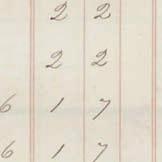 2 2
2 2
6 1 7
6 1 7